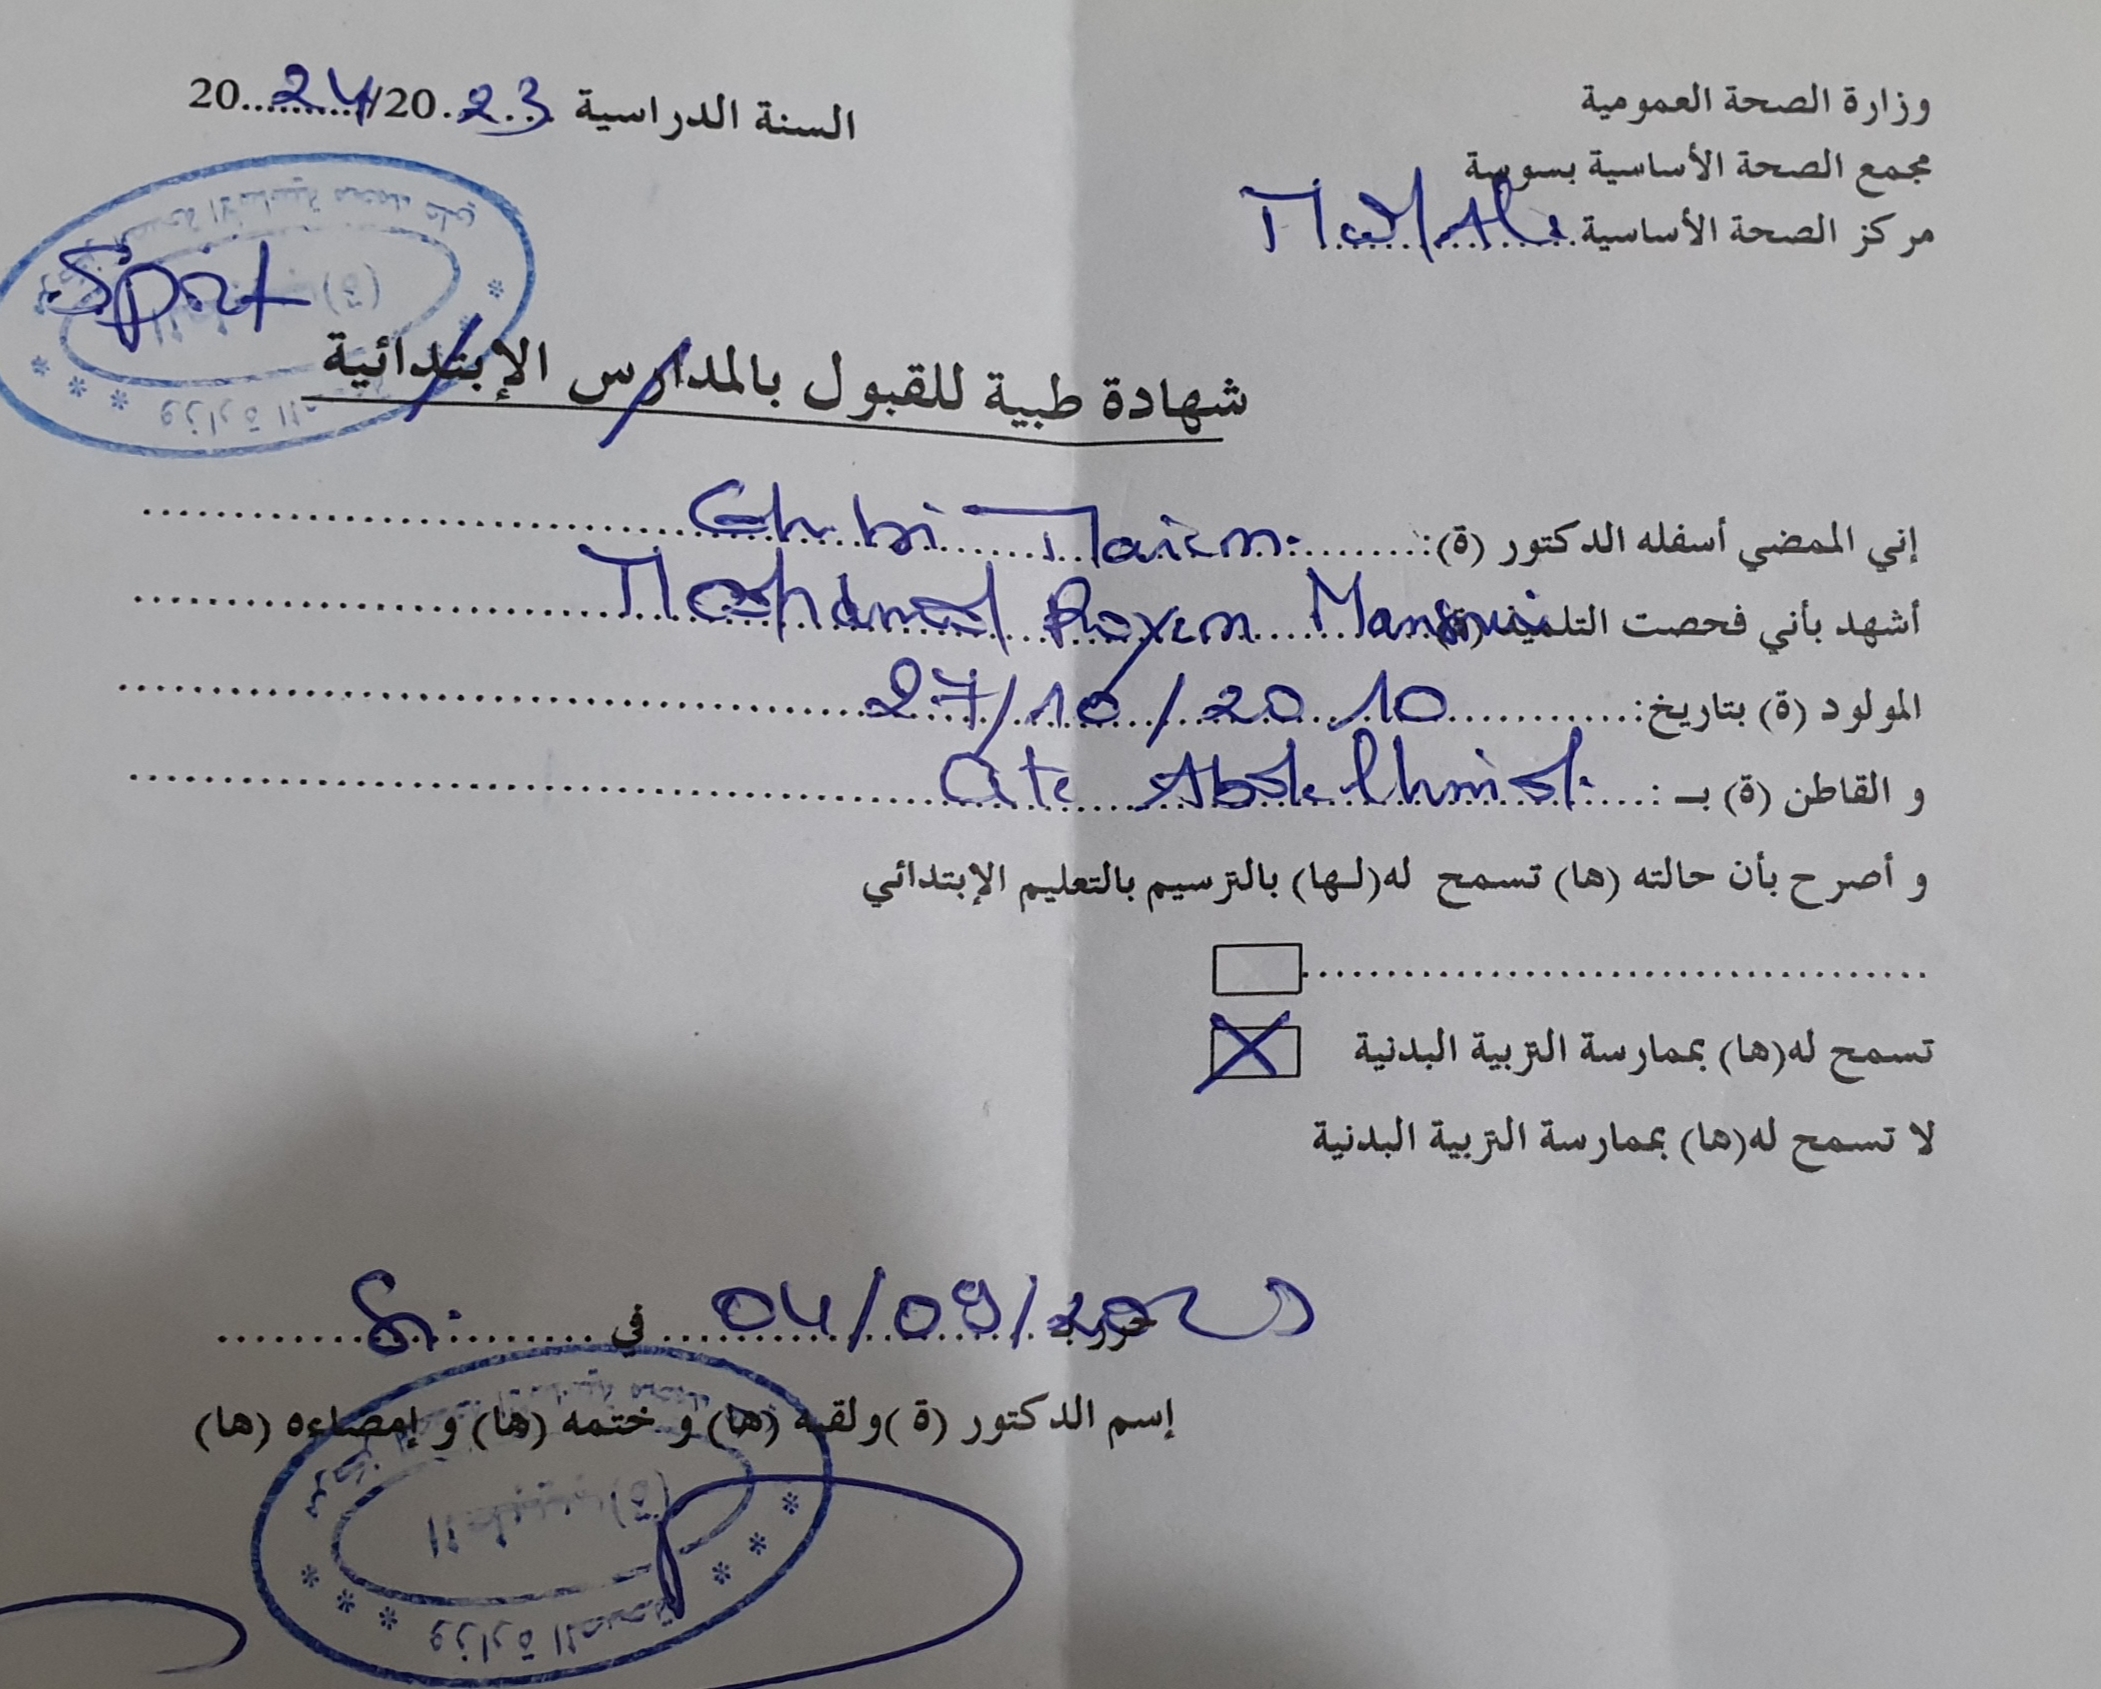 وزارة الصحة العمومية
مجمع الصحة الأساسية بسوسة
مركز الصحة الأساسية Med Ali
السنة الدراسية 2023/2024
Sport
شهادة طبية للقبول بالمدارس الإبتدائية
إني الممضي أسفله الدكتور (ة): Chebi Mariem
أشهد بأني فحصت التلميذ (ة) Mohamed Rayen Mansouri
المولود (ة) بتاريخ: 27/10/2010
و القاطن (ة) بـ : Cite Abdelhmid
و أصرح بأن حالته (ها) تسمح له(لها) بالترسيم بالتعليم الإبتدائي
تسمح له(ها) بممارسة التربية البدنية X
لا تسمح له(ها) بممارسة التربية البدنية
04/09/2023 في
إسم الدكتور (ة )ولقبه (ها) و ختمه (ها) و إمضاءه (ها)
وزارة الصحة